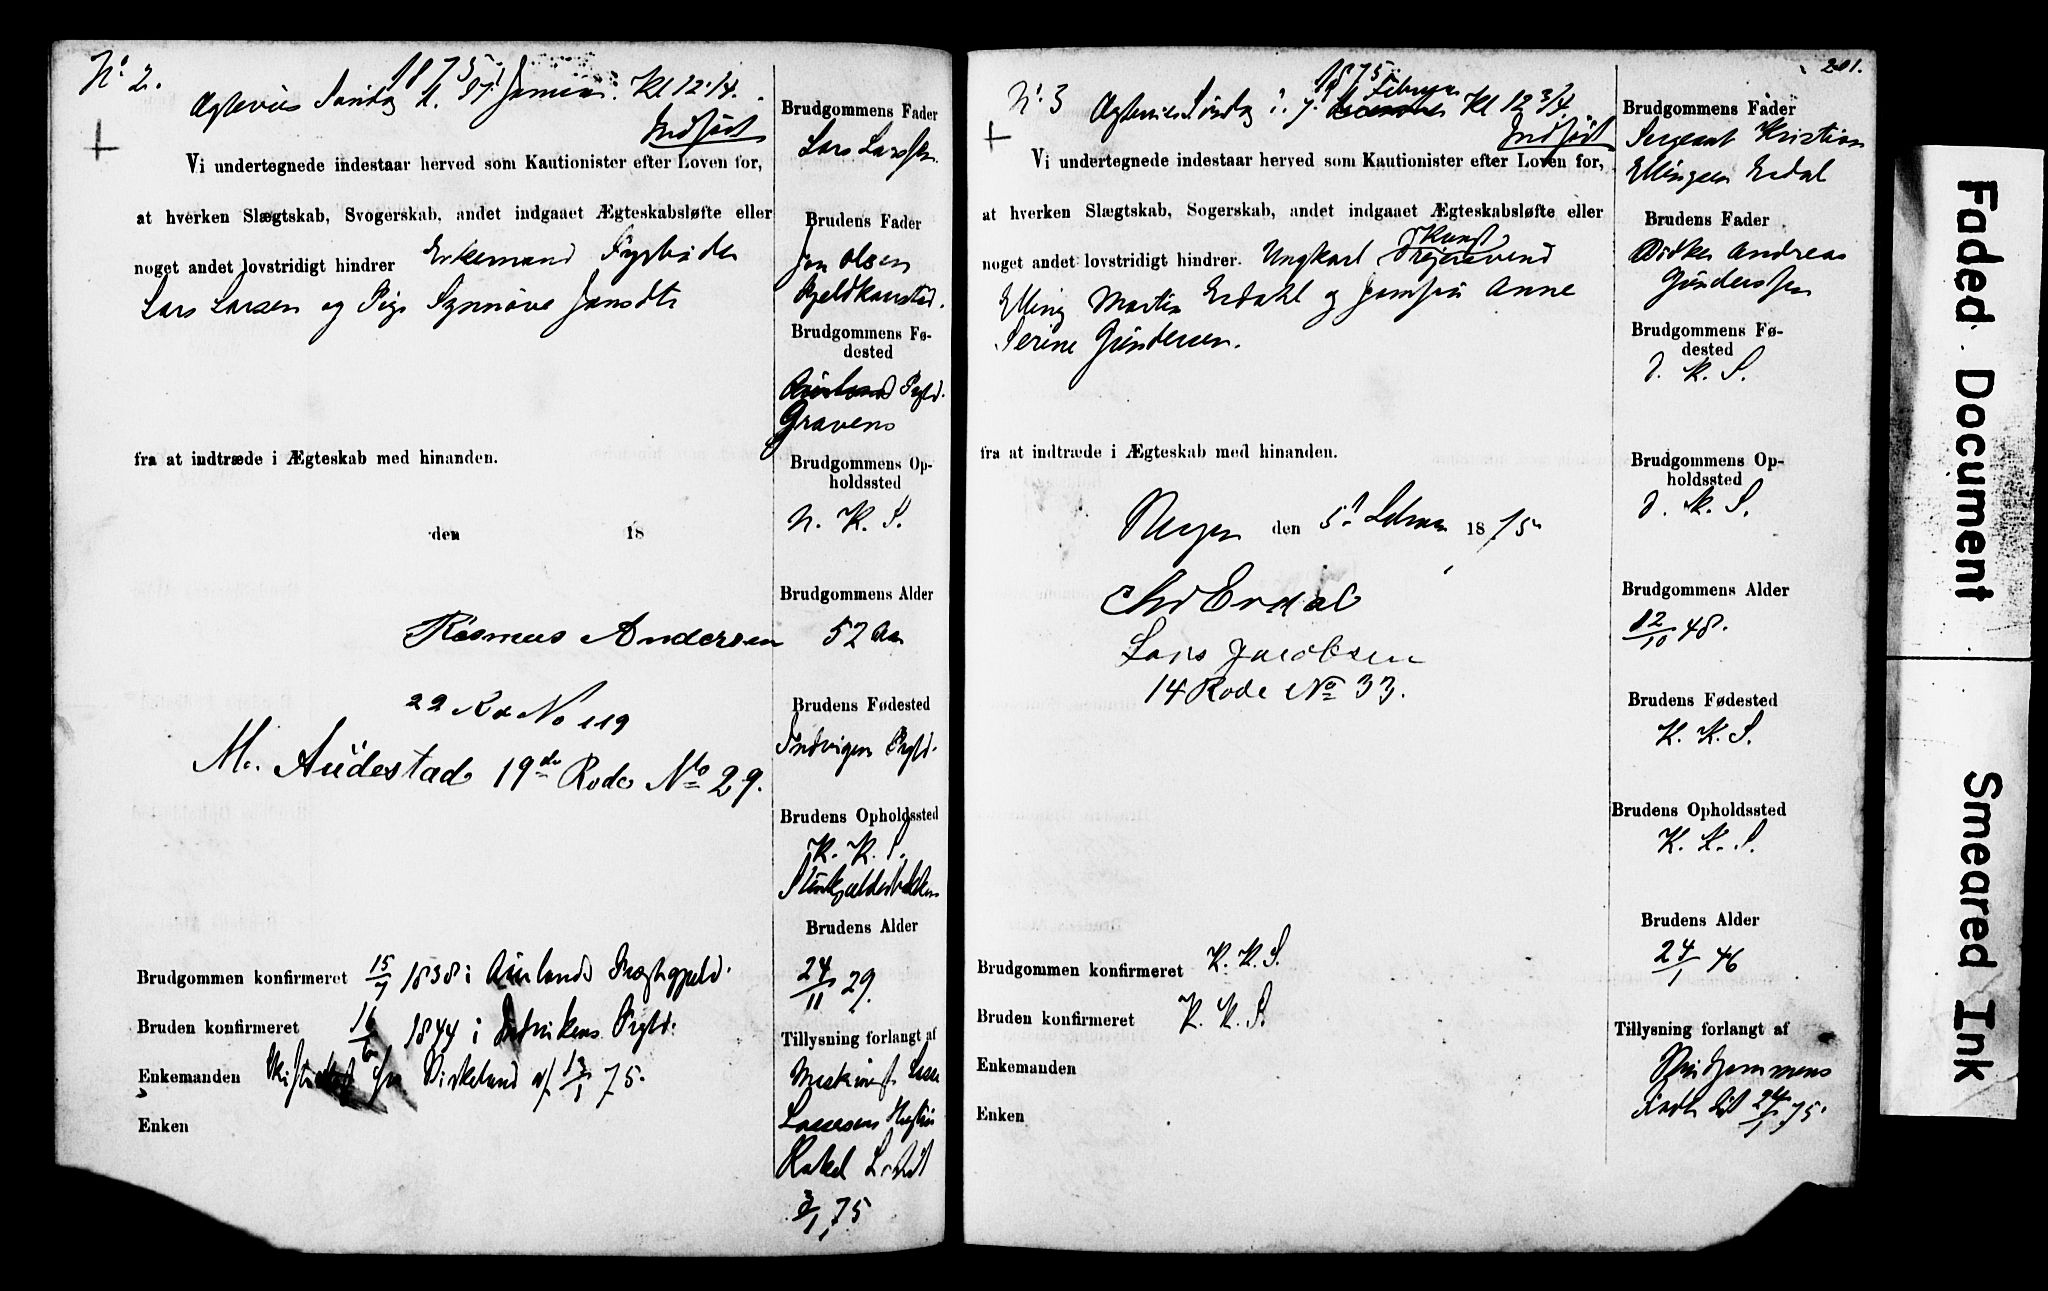 No 2.
1875
Kl 12 1/4.
Indført
Vi undertegnede indestaar herved som Kautionister efter Loven for,
at hverken Slægtskab, Svogerskab, andet indgaaet Ægteskabsløfte eller
noget andet lovstridigt hindrer Enkemand
Lars Larsen og Pige Synnøve Jansdtr
fra at indtræde i Ægteskab med hinanden.
den 18
Rasmus Andersen
22 Rd No 119
M. Audestad 19de Rode No 29.
Brudgommen konfirmeret 15/7 1838 i Aurlands Præstegjeld.
Bruden konfirmeret 16/6 1844 i Indvikens Prgld.
Enkemanden Birkeland af 13/1 75.
Enken
Brudgommens Fader
Lars Larssen
Brudens Fader
Jan Olsen
Brudgommens Fø-
dested
Aurland Prgld.
Gravens
Brudgommens Op-
holdssted
N. K. S.
Brudgommens Alder
52 Aar
Brudens Fødested
Indvigen Prgld.
Brudens Opholdssted
K. K. S.
Brudens Alder
24/11 29.
Tillysning forlangt af
Larsens
Rakel
3/1 75
201.
No 3
1875
Februar Kl 12 3/4.
Indført
Vi undertegnede indestaar herved som Kautionister efter Loven for,
at hverken Slægtskab, Sogerskab, andet indgaaet Ægteskabsløfte eller
noget andet lovstridigt hindrer. Ungkarl
Elling Martin Erdahl og Jomfru Anne
Serine Gundersen.
fra at indtræde i Ægteskab med hinanden.
Bergen den 5t Februar 1875
Chr Erdal
Lars Jacobsen
14 Rode No 33.
Brudgommen konfirmeret K. K. S.
Bruden konfirmeret K. K. S.
Enkemanden
Enken
Brudgommens Fader
Sergeant Kristian
Ellingsen Erdal
Brudens Fader
Bødker Andreas
Gunderssen
Brudgommens Fø-
dested
D. K. S.
Brudgommens Op-
holdssted
D. K. S.
Brudgommens Alder
12/10 48.
Brudens Fødested
K. K. S.
Brudens Opholdssted
K. K. S.
Brudens Alder
24/1 46
Tillysning forlangt af
Brudgommens
Fader 24/1 75.
Faded Document
Smeared Ink